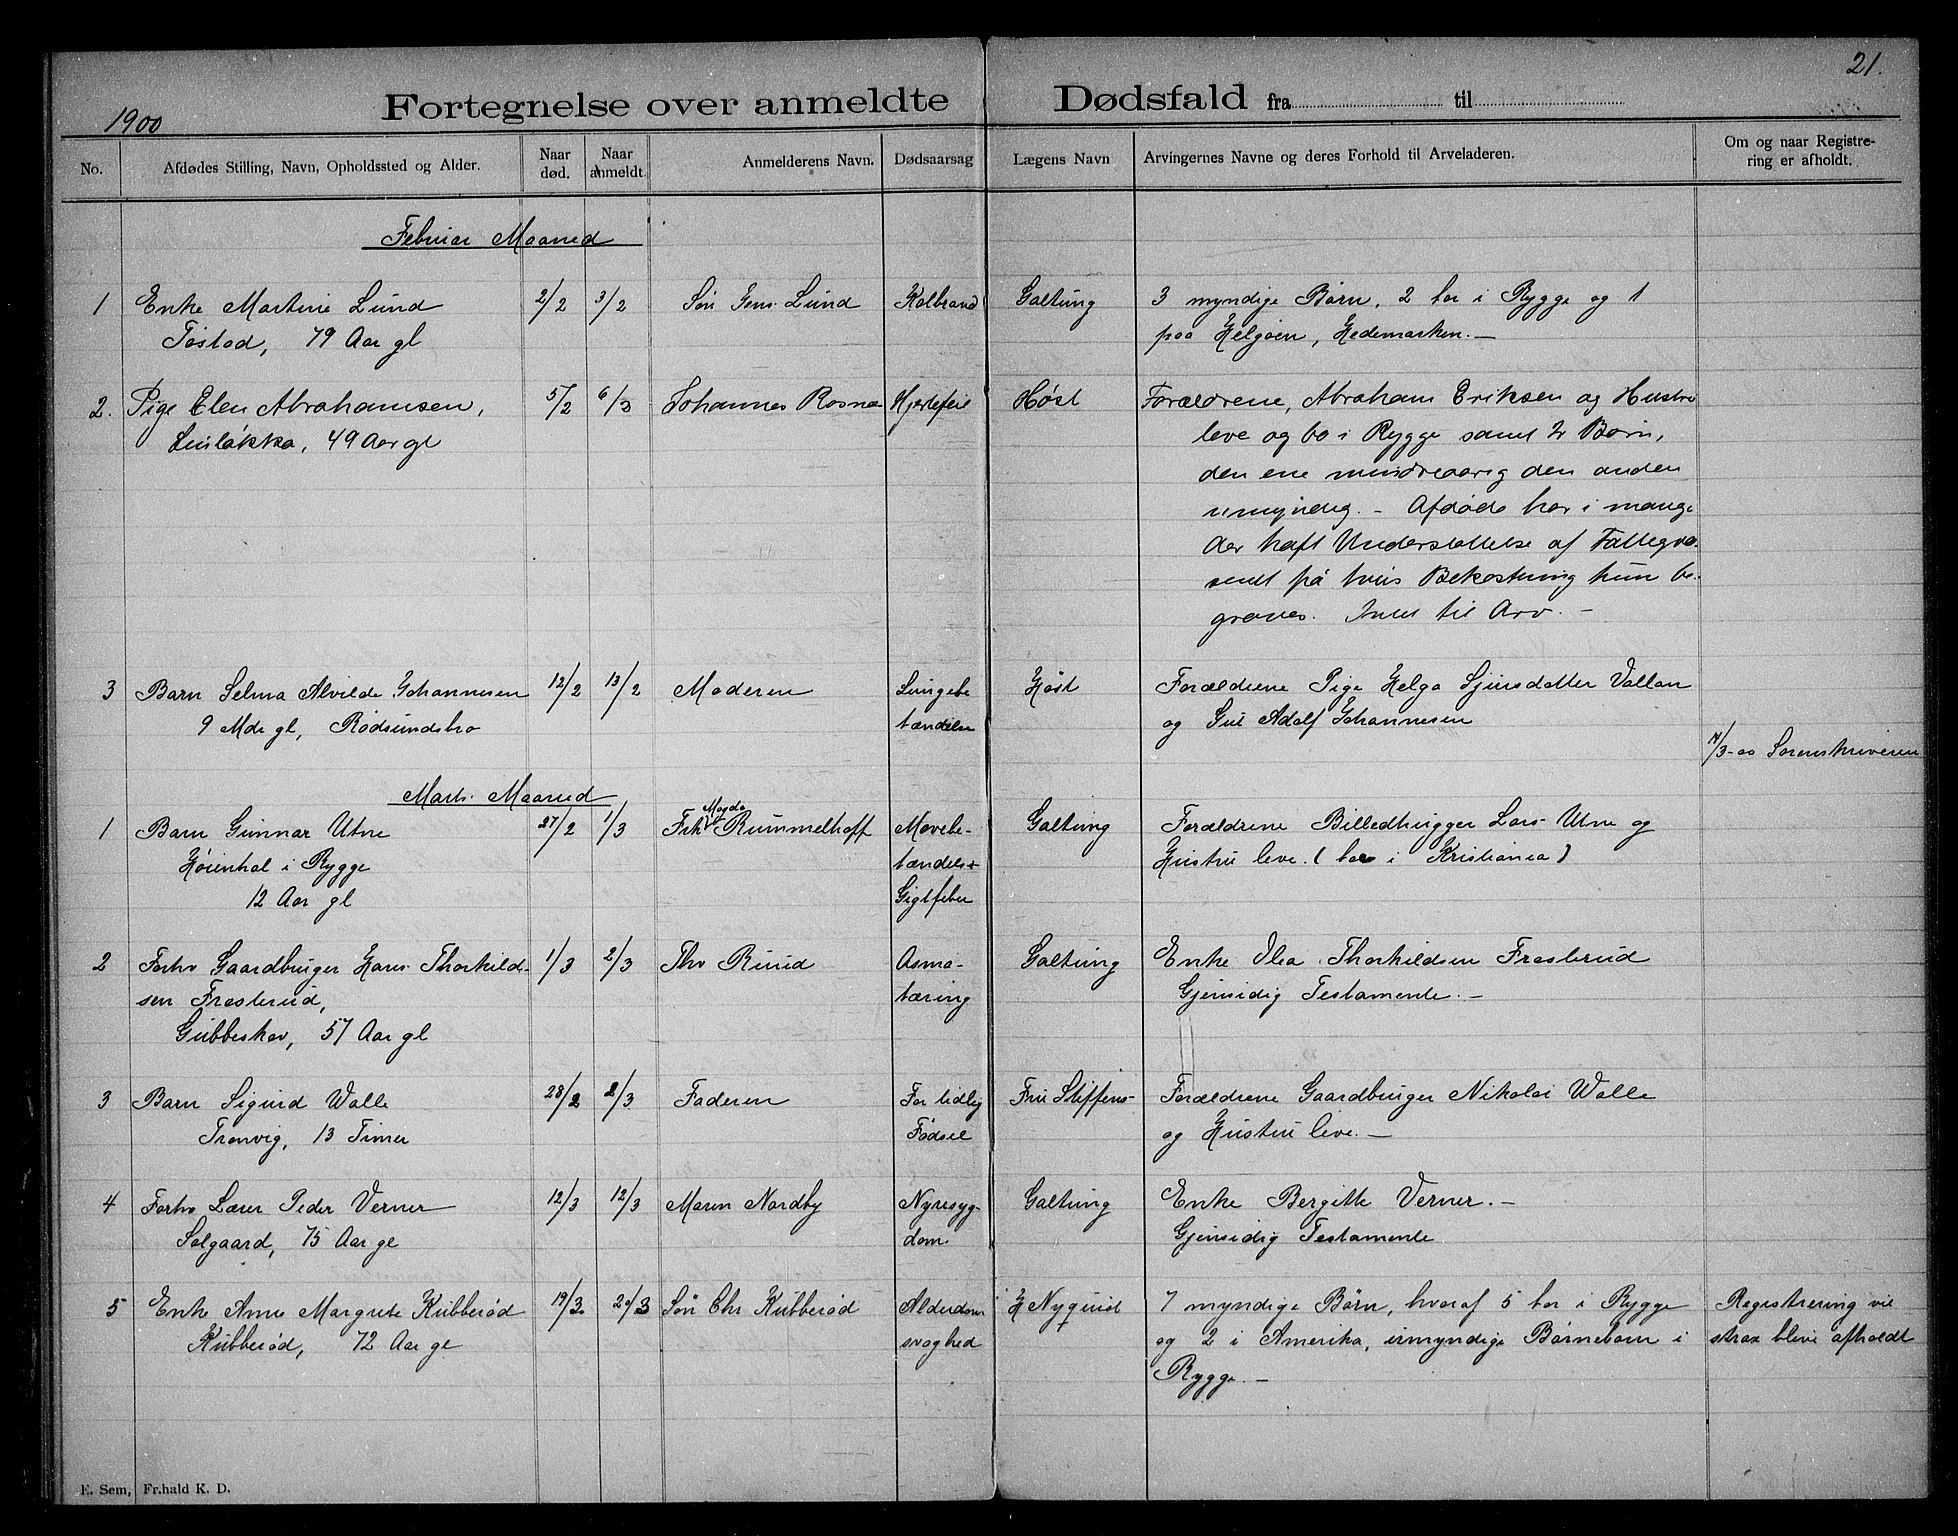 21.
1900
Fortegnelse over anmeldte Dødsfald fra til
No.
Afdødes Stilling, Navn, Opholdssted og Alder.
Naar død.
Naar anmeldt.
Anmelderens Navn.
Dødsaarsag
Lægens Navn
Arvingernes Navne og deres Forhold til Arveladeren.
Om og naar Registrering er afholdt.
Februar Maaned
1 Enke Martine Lund 2/2 3/2 Søn Jens Lund Kolbrand Galtung 3 myndige Børn, 2 bor i Rygge og 1
Tostad, 79 Aar gl paa Helgøen, Hedemarken. —
2. Pige Elen Abrahamsen, 5/2 6/2 Johannes Rosnæ Hjertefeil Høst Forældrene, Abraham Eriksen og Hustru
49 Aar gl leve og bo i Rygge samt 2 Børn,
den ene mindreaarig den anden
umyndig. — Afdøde har i mange
Aar haft Understøttelse af Fattigvæ-
senet på hvis Bekostning hun be-
graves. Intet til Arv. —
3 Barn Selma Alvilde Johannesen 12/2 13/2 Moderen Lungebe Høst Forældrene Pige Helga Vallan
9 Mdr gl, Rødsundsbro tændelse og Adolf Johannesen
14/3-00 Sorenskriveren
Marts Maaned
1 Barn Gunnar Utne 27/2 1/3 Frk Magda Rummelhoff Mavebe- Galtung Forældrene Billedhugger Lars Utne og
Høienhal i Rygge tændels+ Hustru leve. (bor i Kristiania)
12 Aar gl Gigtfeber
2 Forhv Gaardbruger Hans Thorkild- 1/3 2/3 Thv Ruud Asma- Galtung Enke Thorkildsen Frosterud
sen Frosterud, tæring Gjensidig Testamente. —
Gubbeskov, 57 Aar gl
3 Barn Sigurd Walle 28/2 2/3 Faderen For tidlig Fru Steffens- Forældrene Gaardbruger Nikolai Walle
Tronvig, 13 Timer Fødsel og Hustru leve. —
4 Forhv Lærer Peder Verner 12/3 12/3 Maren Nordby Nyresyg- Galtung Enke Bergitte Verner. —
Solgaard, 75 Aar gl dom Gjensidig Testamente
5 Enke Anne Margrete Kubberød 19/3 20/3 Søn Chr Kubberød Alderdom H Nyquist 7 myndige Børn, hvoraf 5 bor i Rygge Registrering vil
Kubberød, 72 Aar gl svaghed og 2 i Amerika, umyndige Børnebørn i strax blive afholdt
Rygge. —
E. Sem, Fr.hald K. D.